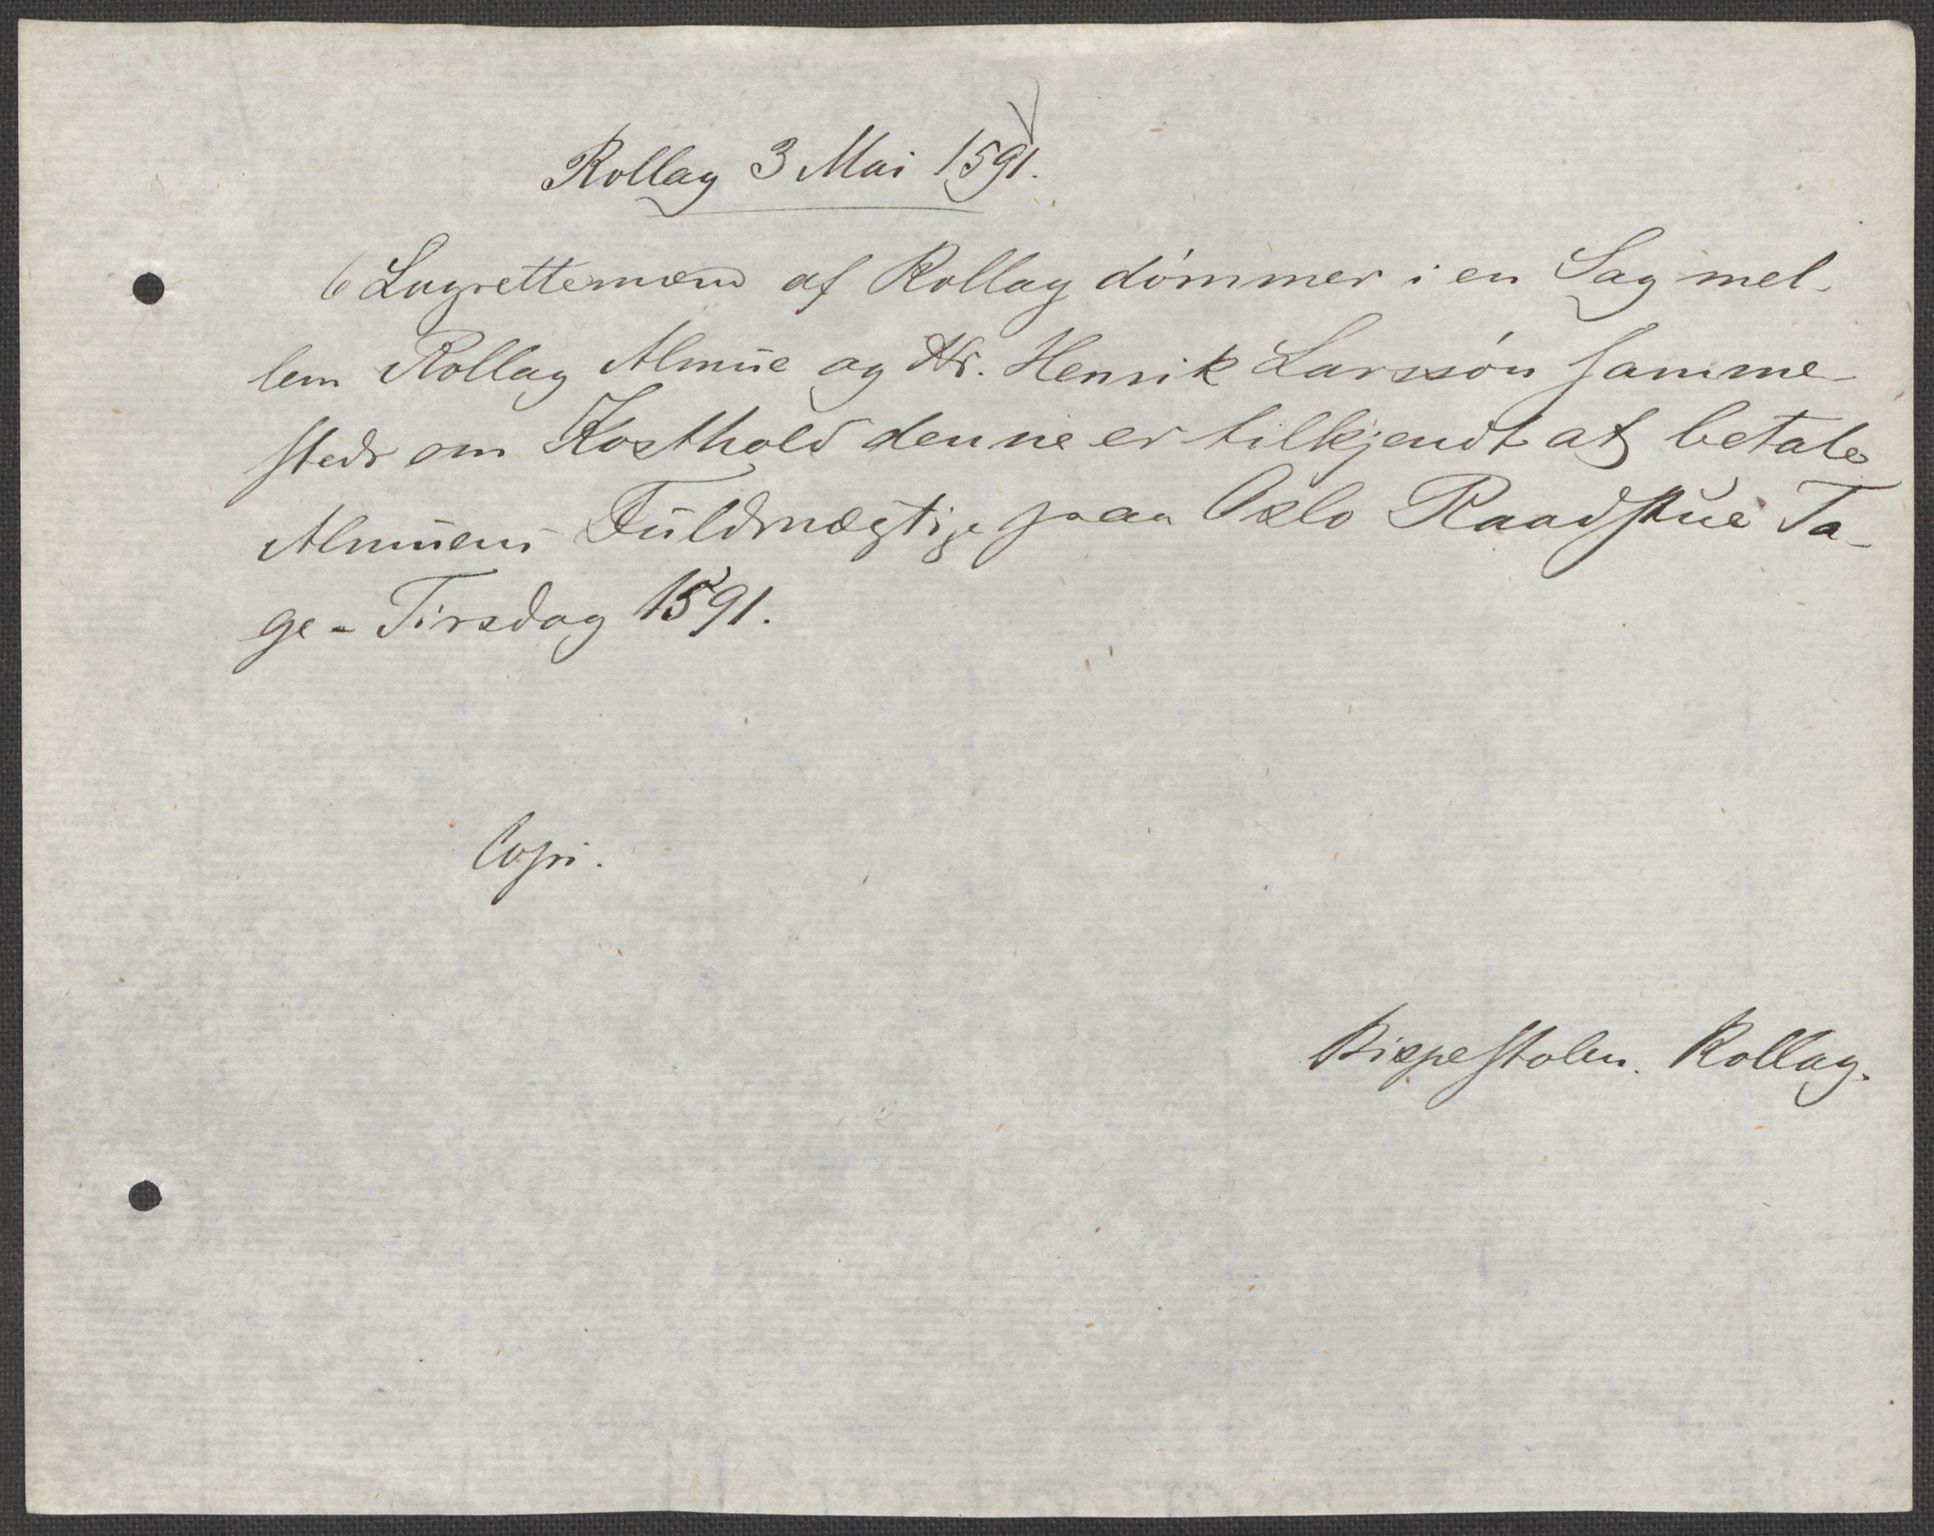 Rollag 3 Mai 1591.
6 Lagrettemænd af Rollag dömmer i en Sag mel-
lem Rollag Almue og Hr. Henrik Larssön samme-
steds om Kosthold denne er tilkjendt at betale
Almuens Fuldmægtige paa Oslo Raadstue Ta-
ge-Tirsdag 1591.
Copi.
Bispestolen. Rollag.